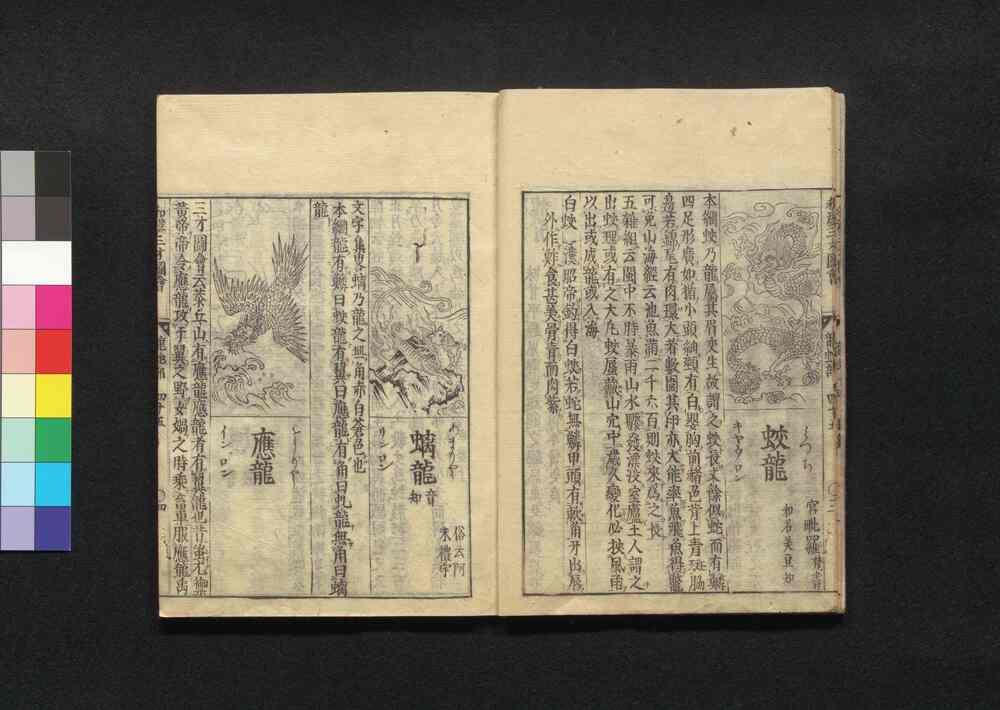 蛟龍
みつち
キヤウロン
宮毗羅 梵書
和名美豆知
本綱蛟乃龍屬其眉交生故謂之蛟長丈餘似蛇而有鱗
四足形廣如楯小頭細頸有白嬰胸前赭色背上青斑脇
邊若錦尾有肉環大者數圍其卵亦大能率魚飛魚得鼈
可免山海經云池魚滿二千六百則蛟來爲之長
五雜組云閩中不時暴雨山水驟發漂没室廬土人謂之
出蛟理或有之大凡蛟蜃藏山穴中歳久變化必挾風雨
以出或成龍或入海
白蛟 漢昭帝釣得白蛟若蛇無鱗甲頭有軟角牙出唇
外作鮓食甚美骨青而肉紫
螭龍
音知
あまりやう
リンロン
俗云阿末禮宇
文字集畧螭乃龍之無角赤白蒼色也
本綱龍有鱗曰蛟龍有翼曰應龍有角曰虬龍無角曰螭
龍
應龍
インロン
三才圖會云恭丘山有應龍應龍者有翼龍也昔蚩尤禦
黄帝帝令應龍攻于冀之野女媧之時乘畜車服應龍禹
和漢三才圖會
龍蛇部
四十五